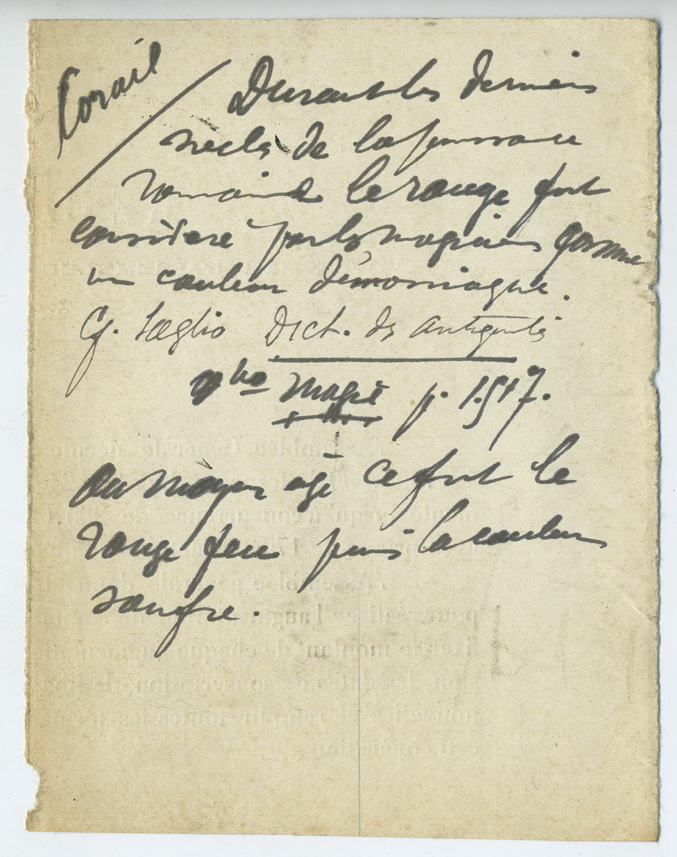 Corail
Durant les derniers
siecls de la puissance
romaine le rouge fut
considere par les magiciens comme
un couleur démoniaque.
Cf. Saglio Dict. ds Antiquités
vbo Magie p. 1.517.
Au moyen age ce fut le
rouge feu puis la couleur
soufre.